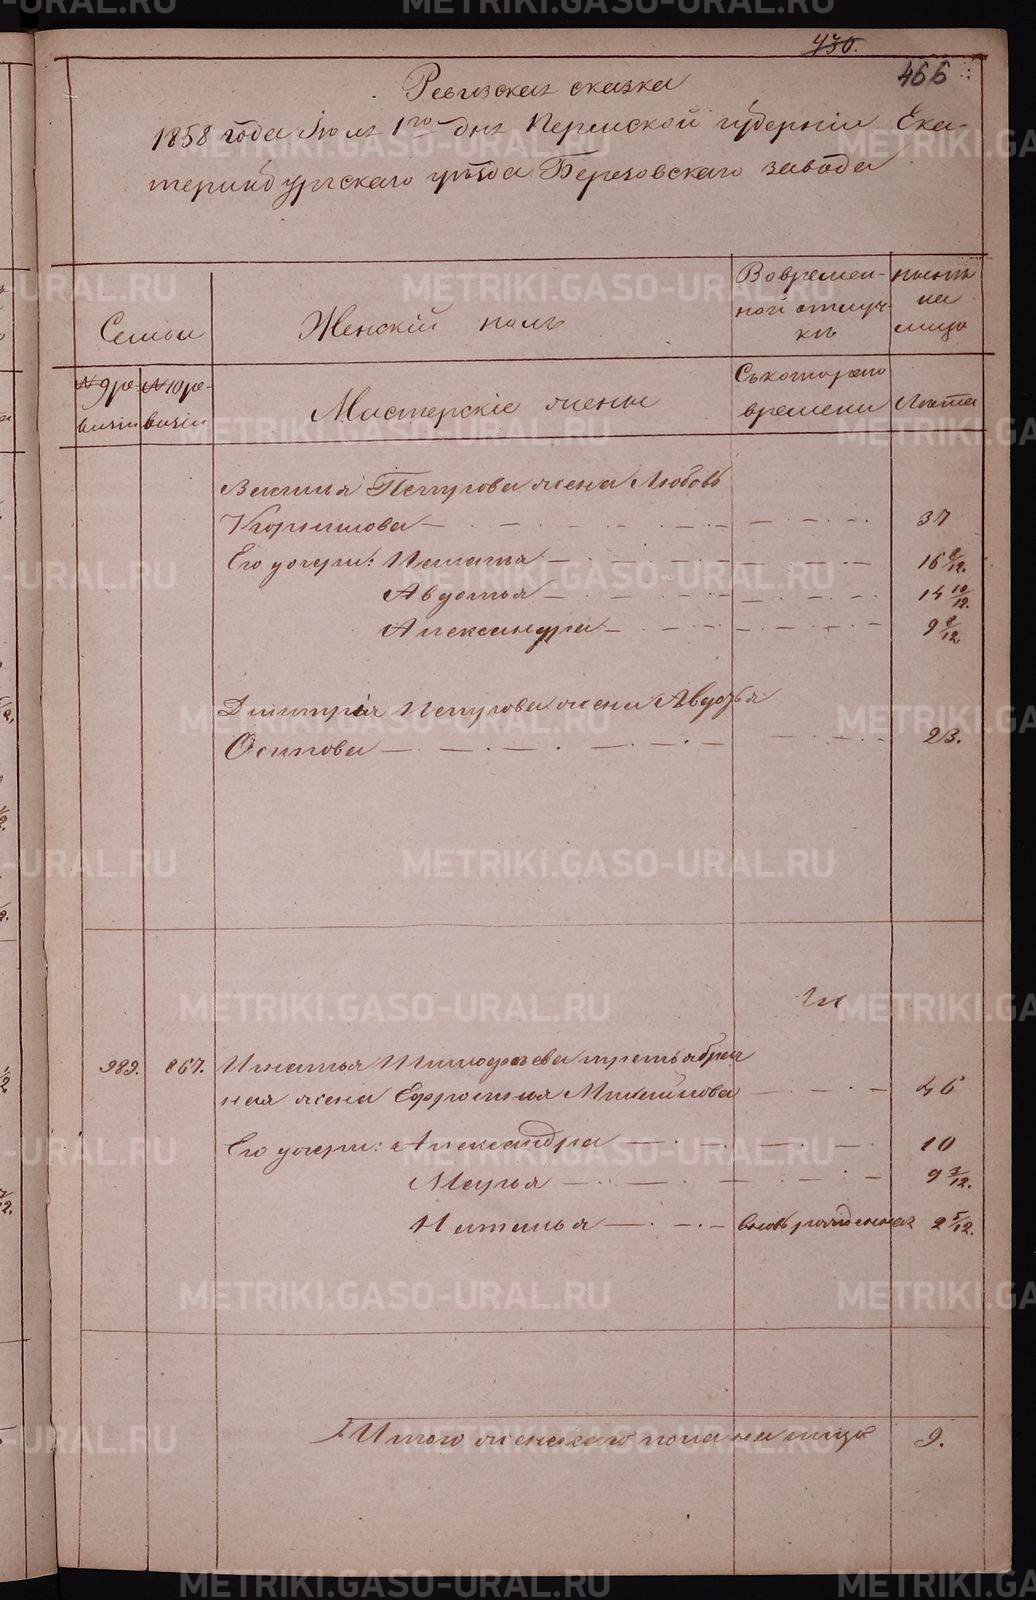 430.
466
Ревизская сказка
1858 года Июля 1го дня Пермской губернiи Ека-
теринбургскаго уѣзда Березовскаго завода
Семьи
Женскiй полъ
Во времен-
ной отлуч-
кѣ
нынѣ
на
лицо
№ 9 ре-
визiи
№ 10 ре-
визiи
Мастерскiе жены
Съ котораго
времени
Лѣта
Василья Петрова жена Любовь
Корнилова 37
Его дочери: Наталья 16
Авдотья 14 10/12.
Александра 9
Дмитрiя Петрова жена Авдотья
Осипова 23.
989. 867. Игнатья Тимофеева третьебрач
ная жена Ефросинья Михайлова 46
Его дочери: Александра 10
Марья 9 3/12.
Наталья вновь рожденная 2 5/12.
Итого женскаго пола на лицо 9.
METRIKI.GASO-URAL.RU